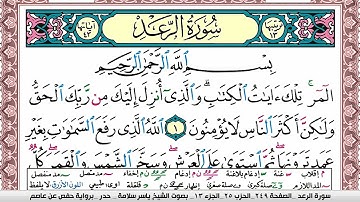 سُورَةُ الرَّعْدِ
بِسْمِ اللَّهِ الرَّحْمَٰنِ الرَّحِيمِ
الٓمٓر ۚ تِلْكَ ءَايَٰتُ الْكِتَٰبِ ۗ وَالَّذِىٓ أُنزِلَ إِلَيْكَ مِن رَّبِّكَ الْحَقُّ
وَلَٰكِنَّ أَكْثَرَ النَّاسِ لَا يُؤْمِنُونَ ١ اللَّهُ الَّذِى رَفَعَ السَّمَٰوَٰتِ بِغَيْرِ
عَمَدٍ تَرَوْنَهَا ۖ ثُمَّ اسْتَوَىٰ عَلَى الْعَرْشِ ۖ وَسَخَّرَ الشَّمْسَ وَالْقَمَرَ ۖ كُلٌّ
سورة الرعد الصفحة ٢٤٩ الحزب ٢٥ الجزء ١٣ بصوت الشيخ ياسر سلامة حدر برواية حفص عن عاصم